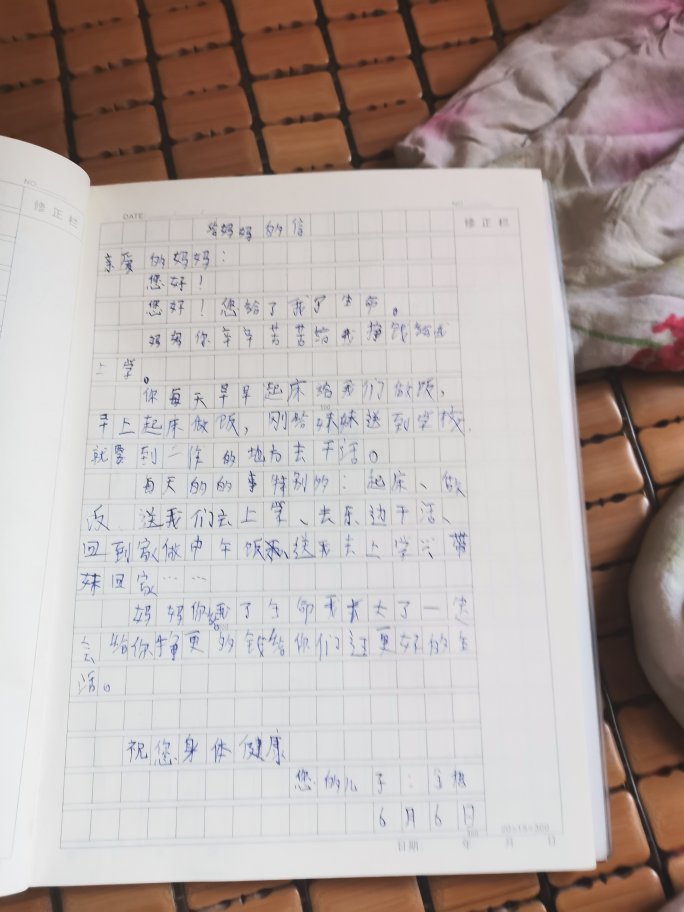 NO.
修正栏
DATE
NO.
修正栏
给妈妈的信
亲爱的妈妈：
您好！
您好！您给了我了生命。
妈妈你辛辛苦苦给我挣钱给我
上学。
你每天早早起床给我们做饭，
早上起床做饭，刚给妹妹送到学校，
就要到工作的地方去干活。
每天的的事特别的：起床、做
反、送我们去上学、去东边干活、
回到家做中午饭、送我去上学、带
妹回家……
妈妈你给我了生命我长大了一定
会给你挣更的钱给你们过更好的生
活。
祝您身体健康
您的儿子：
6月6日
300
20×15=300
日期 年 月 日